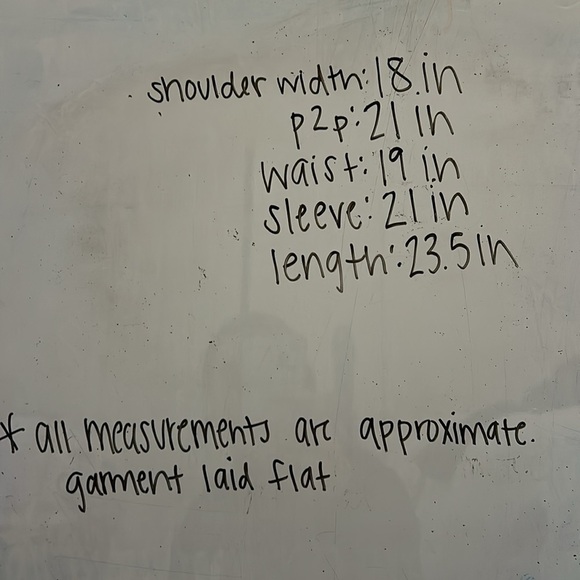 shoulder width: 18 in
p2p: 21 in
waist: 19 in
sleeve: 21 in
length: 23.5 in
* all measurements are approximate.
garment laid flat